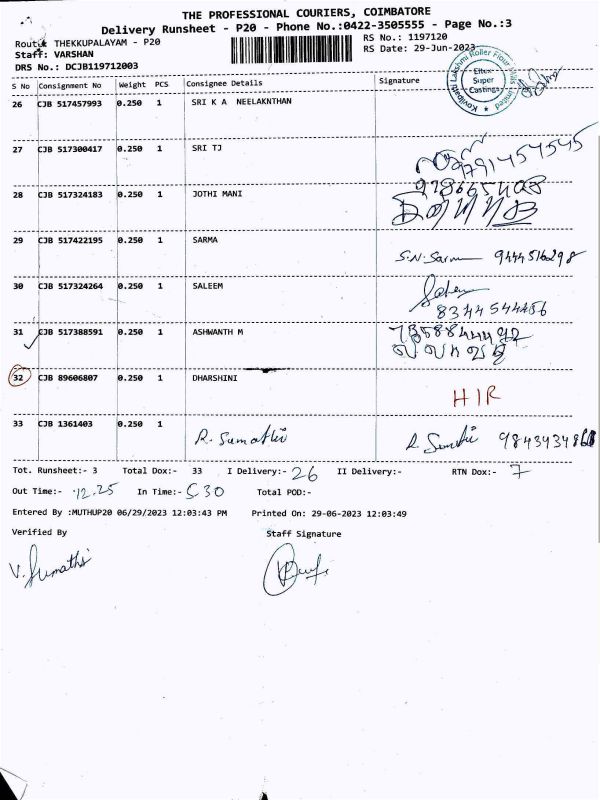 THE PROFESSIONAL COURIERS, COIMBATORE
Delivery Runsheet - P20 - Phone No.:0422-3505555 - Page No.:3
Route: THEKKUPALAYAM - P20
RS No.: 1197120
Staff: VARSHAN
RS Date: 29-Jun-2023
DRS No.: DCJB119712003
S No Consignment No Weight PCS Consignee Details Signature
Kovilpatti Lakshmi Roller Flour Mills Limited
Eltex
Super
Castings
26 CJB 517457993 0.250 1 SRI K A NEELAKNTHAN
27 CJB 517300417 0.250 1 SRI TJ 9791457545
28 CJB 517324183 0.250 1 JOTHI MANI
29 CJB 517422195 0.250 1 SARMA S.N. Sarm 9444516298
30 CJB 517324264 0.250 1 SALEEM
8344544456
31 CJB 517388591 0.250 1 ASHWANTH M
32 CJB 89606807 0.250 1 DHARSHINI HIR
33 CJB 1361403 0.250 1 R. Sumathi
Tot. Runsheet:- 3 Total Dox:- 33 I Delivery:- 26 II Delivery:- RTN Dox:- 7
Out Time:- 12.25 In Time:- 5.30 Total POD:-
Entered By :MUTHUP20 06/29/2023 12:03:43 PM Printed On: 29-06-2023 12:03:49
Verified By Staff Signature
V. Sumathi